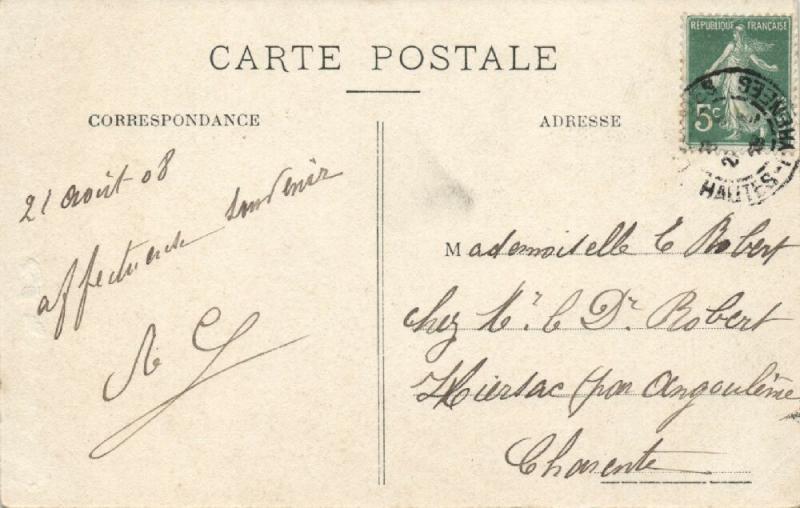 CARTE POSTALE
RÉPUBLIQUE FRANÇAISE
5c
HAUTES-
CORRESPONDANCE
ADRESSE
21 août 08
affectueux souvenir
Mademoiselle E Robert
chez Mr. le Dr. Robert
Hiersac par Angoulême
Charente